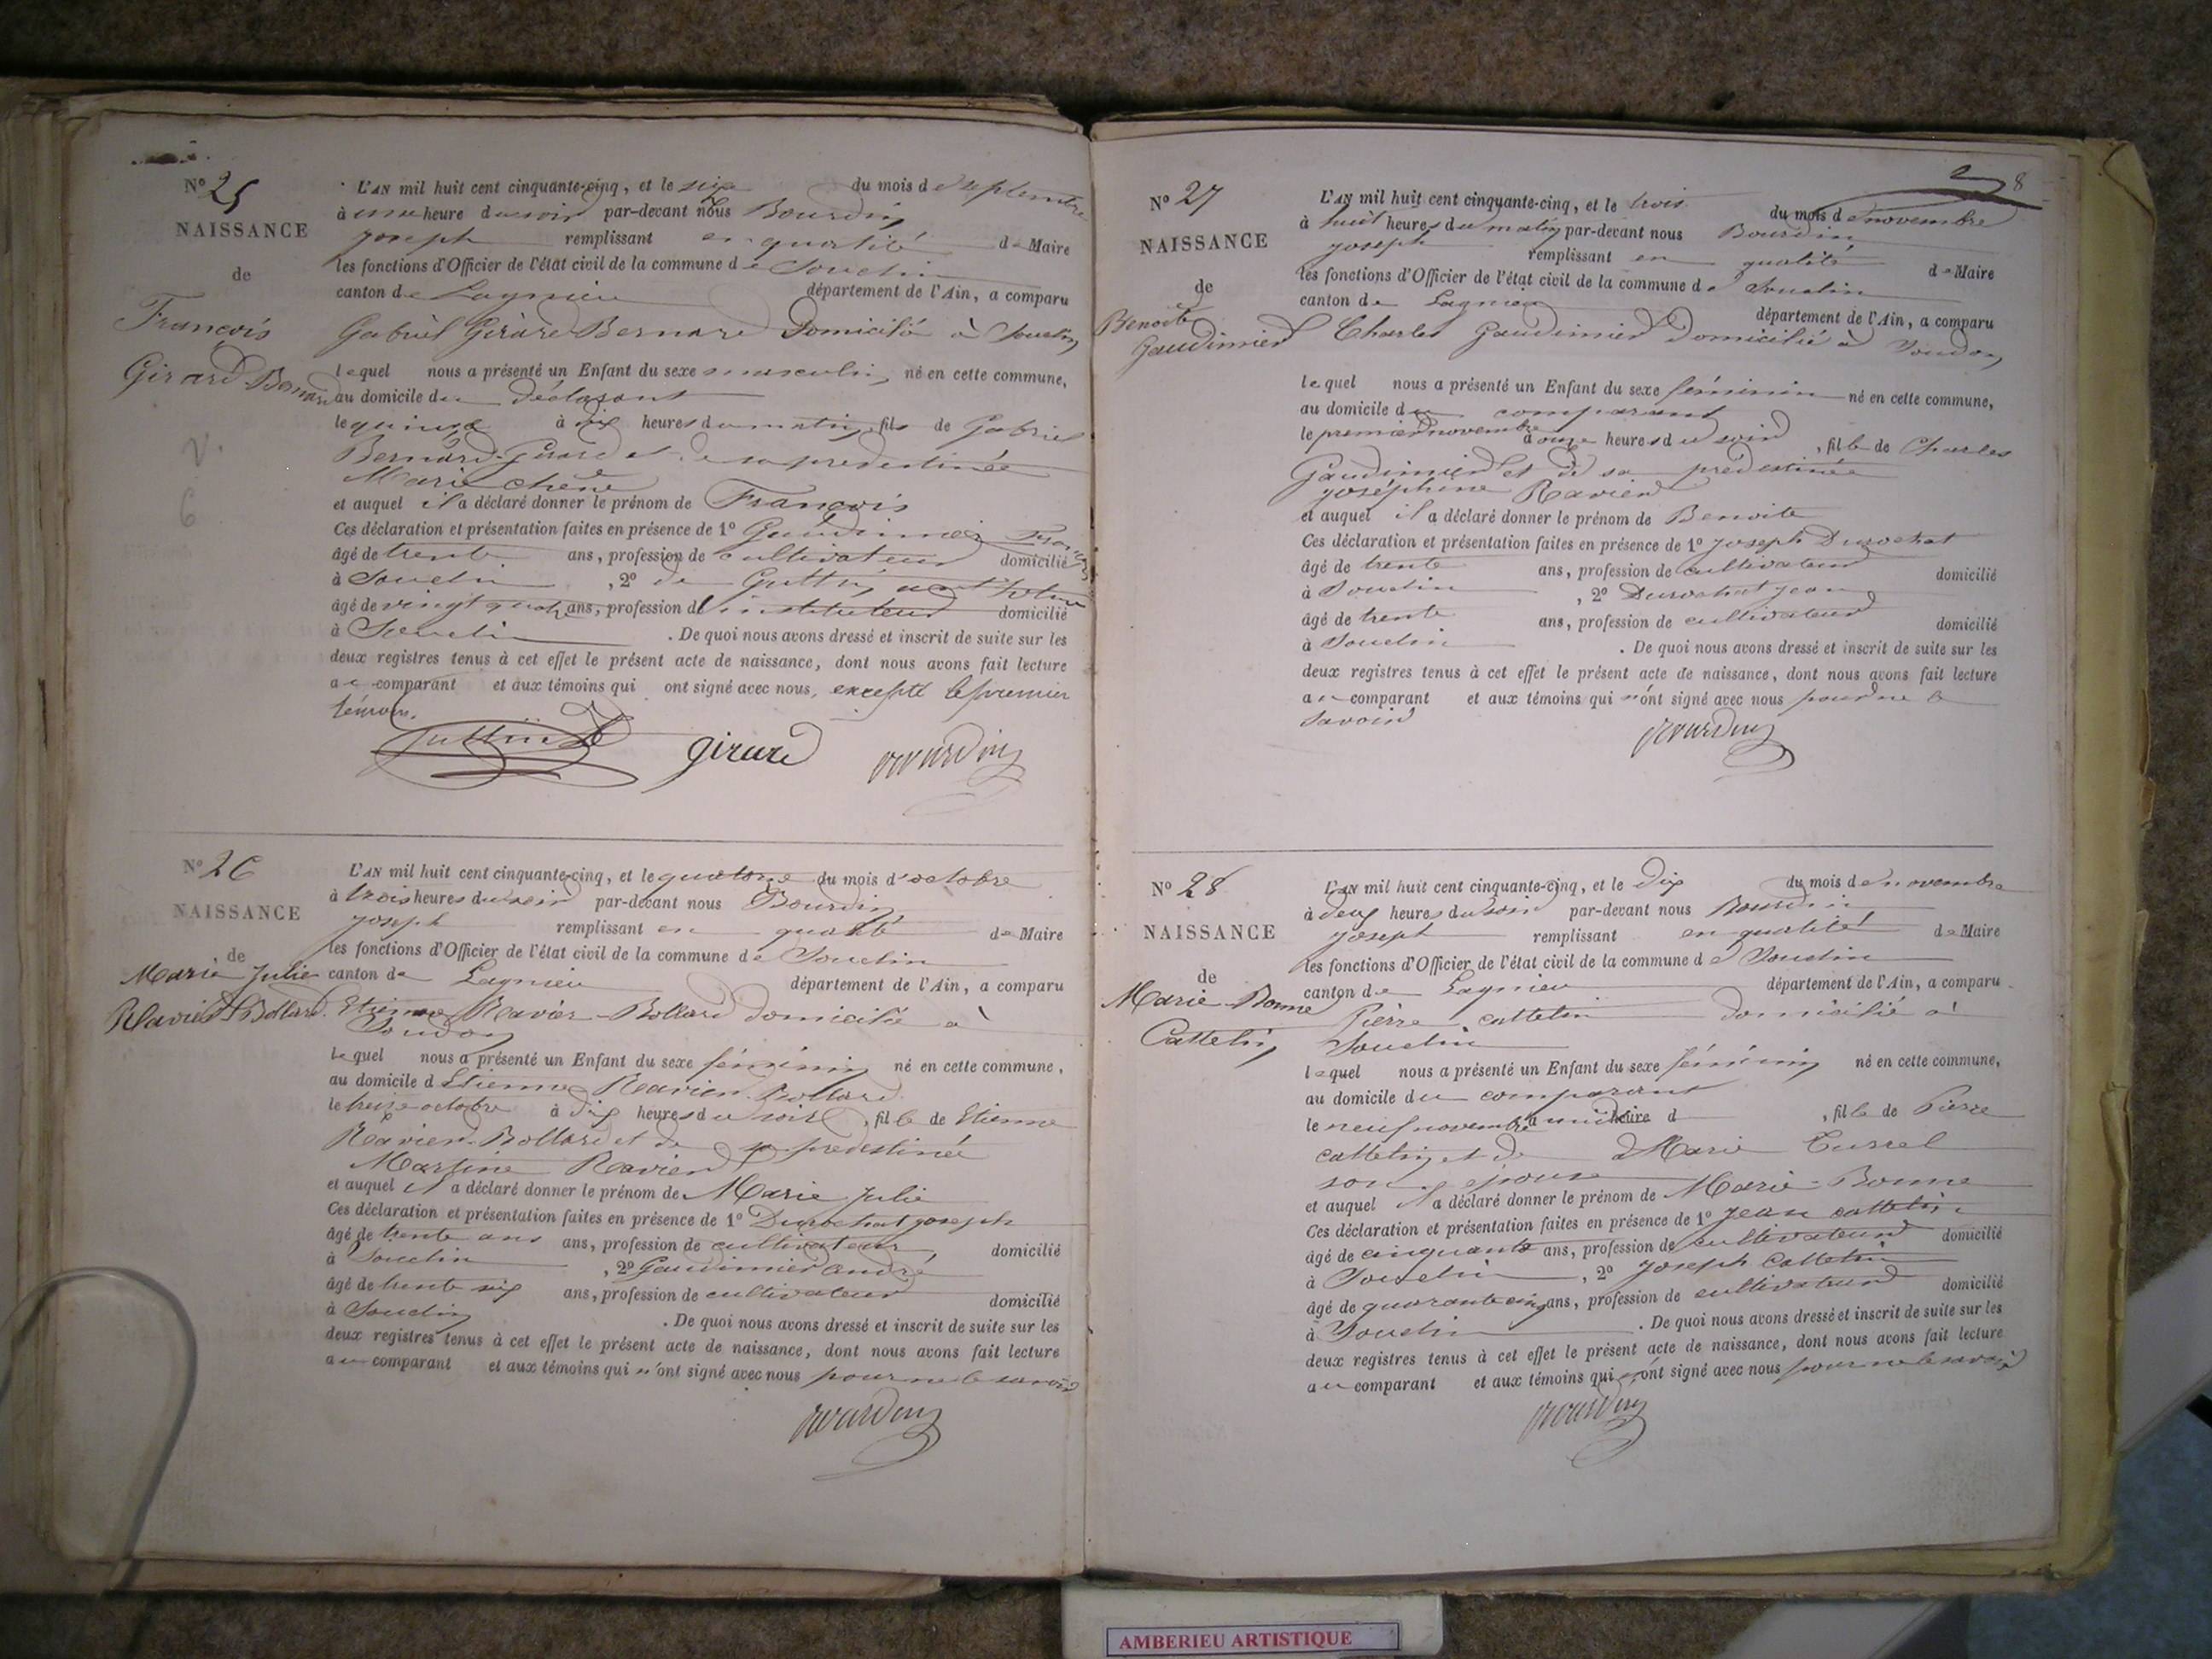 N° 25
NAISSANCE
de
François
Girard-Bernard
L'AN mil huit cent cinquante-cinq, et le six du mois de septembre
à une heure du soir par-devant nous Bourdin
joseph remplissant en qualité de Maire
les fonctions d'Officier de l'état civil de la commune de Souclin
canton de Lagnieu département de l'Ain, a comparu
Gabriel Girard-Bernard domicilié à Souclin
lequel nous a présenté un Enfant du sexe masculin né en cette commune,
au domicile du déclarant
le à dix heures du matin fils de Gabriel
Bernard-Girard et de sa predestinée
Marie chêne
et auquel il a déclaré donner le prénom de François
Ces déclaration et présentation faites en présence de 1° Gaudimier
âgé de trente ans, profession de cultivateur domicilié
à Souclin, 2° de Guttin
âgé de vingt quatre ans, profession d'instituteur domicilié
à Souclin. De quoi nous avons dressé et inscrit de suite sur les
deux registres tenus à cet effet le présent acte de naissance, dont nous avons fait lecture
au comparant et aux témoins qui ont signé avec nous, excepté le premier
témoin.
Guttin girard Bourdin
N° 26
NAISSANCE
de
Marie Julie
Ravier-Bollard
L'AN mil huit cent cinquante-cinq, et le quatorze du mois d'octobre
à trois heures du soir par-devant nous Bourdin
joseph remplissant en qualité de Maire
les fonctions d'Officier de l'état civil de la commune de Souclin
canton de Lagnieu département de l'Ain, a comparu
Etienne Ravier-Bollard domicilié à
Soudon
lequel nous a présenté un Enfant du sexe féminin né en cette commune,
au domicile d'Etienne Ravier-Bollard
le treize octobre à dix heures du soir, fille de Etienne
Ravier-Bollard et de sa predestinée
Martine Ravier
et auquel il a déclaré donner le prénom de Marie Julie
Ces déclaration et présentation faites en présence de 1° Durochat joseph
âgé de trente ans ans, profession de cultivateur, domicilié
à Souclin, 2° Gaudimier andré
âgé de trente six ans, profession de cultivateur domicilié
à Souclin. De quoi nous avons dressé et inscrit de suite sur les
deux registres tenus à cet effet le présent acte de naissance, dont nous avons fait lecture
au comparant et aux témoins qui n'ont signé avec nous pour ne le savoir
Bourdin
8
N° 27
NAISSANCE
de
Benoite
Gaudimier
L'AN mil huit cent cinquante-cinq, et le trois du mois de novembre
à huit heures du matin par-devant nous Bourdin
joseph remplissant en qualité de Maire
les fonctions d'Officier de l'état civil de la commune de Souclin
canton de Lagnieu département de l'Ain, a comparu
Charles Gaudimier domicilié à Soudon
lequel nous a présenté un Enfant du sexe féminin né en cette commune,
au domicile du comparant
le premier novembre à onze heures du soir, fille de Charles
Gaudimier et de sa predestinée
joséphine Ravier
et auquel il a déclaré donner le prénom de Benoite
Ces déclaration et présentation faites en présence de 1° joseph Durochat
âgé de trente ans, profession de cultivateur domicilié
à Souclin, 2° Durochat jean
âgé de trente ans, profession de cultivateur domicilié
à Souclin. De quoi nous avons dressé et inscrit de suite sur les
deux registres tenus à cet effet le présent acte de naissance, dont nous avons fait lecture
au comparant et aux témoins qui n'ont signé avec nous pour ne le
savoir
Bourdin
N° 28
NAISSANCE
de
Marie-Bonne
Cattelin
L'AN mil huit cent cinquante-cinq, et le dix du mois de novembre
à deux heures du soir par-devant nous Bourdin
joseph remplissant en qualité de Maire
les fonctions d'Officier de l'état civil de la commune de Souclin
canton de Lagnieu département de l'Ain, a comparu
Pierre cattelin domicilié à
Souclin
lequel nous a présenté un Enfant du sexe féminin né en cette commune,
au domicile du comparant
le neuf novembre à heure d, fille de Pierre
cattelin et de Marie Currel
son épouse
et auquel il a déclaré donner le prénom de Marie-Bonne
Ces déclaration et présentation faites en présence de 1° jean cattelin
âgé de cinquante ans, profession de cultivateur domicilié
à Souclin, 2° joseph Cattelin
âgé de quarante cinq ans, profession de cultivateur domicilié
à Souclin. De quoi nous avons dressé et inscrit de suite sur les
deux registres tenus à cet effet le présent acte de naissance, dont nous avons fait lecture
au comparant et aux témoins qui n'ont signé avec nous pour ne le savoir
Bourdin
AMBERIEU ARTISTIQUE